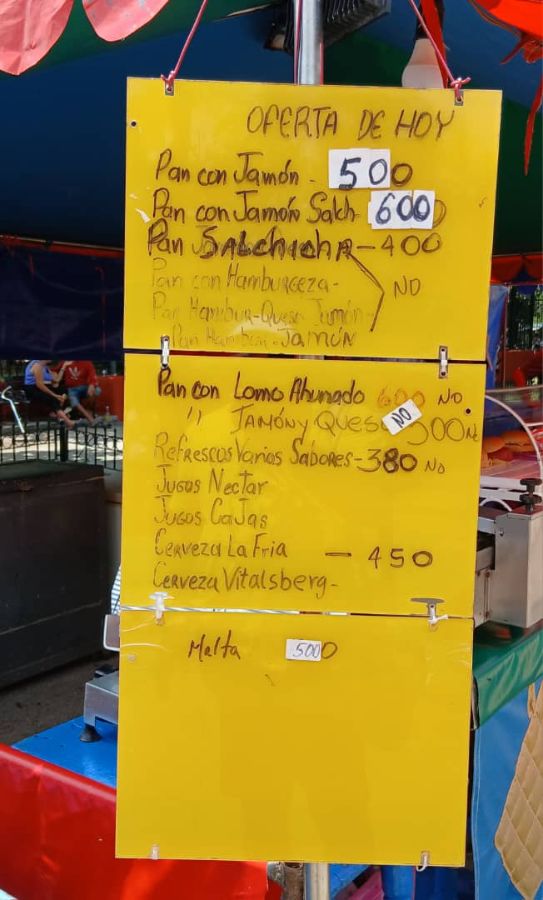 OFERTA DE HOY
Pan con Jamón - 500
Pan con Jamón Salch - 600
Pan SALCHICHA - 400
Pan con Hamburgeza - NO
Pan Hambur-Queso-Jamón-
Pan Hambur-JAMÓN
Pan con Lomo Ahumado 600 NO
" JAMÓN y QUESO NO 500 No
Refrescos Varios Sabores - 380 No
Jugos Nectar
Jugos Cajas
Cerveza La Fria - 450
Cerveza Vitalsberg-
Malta 500